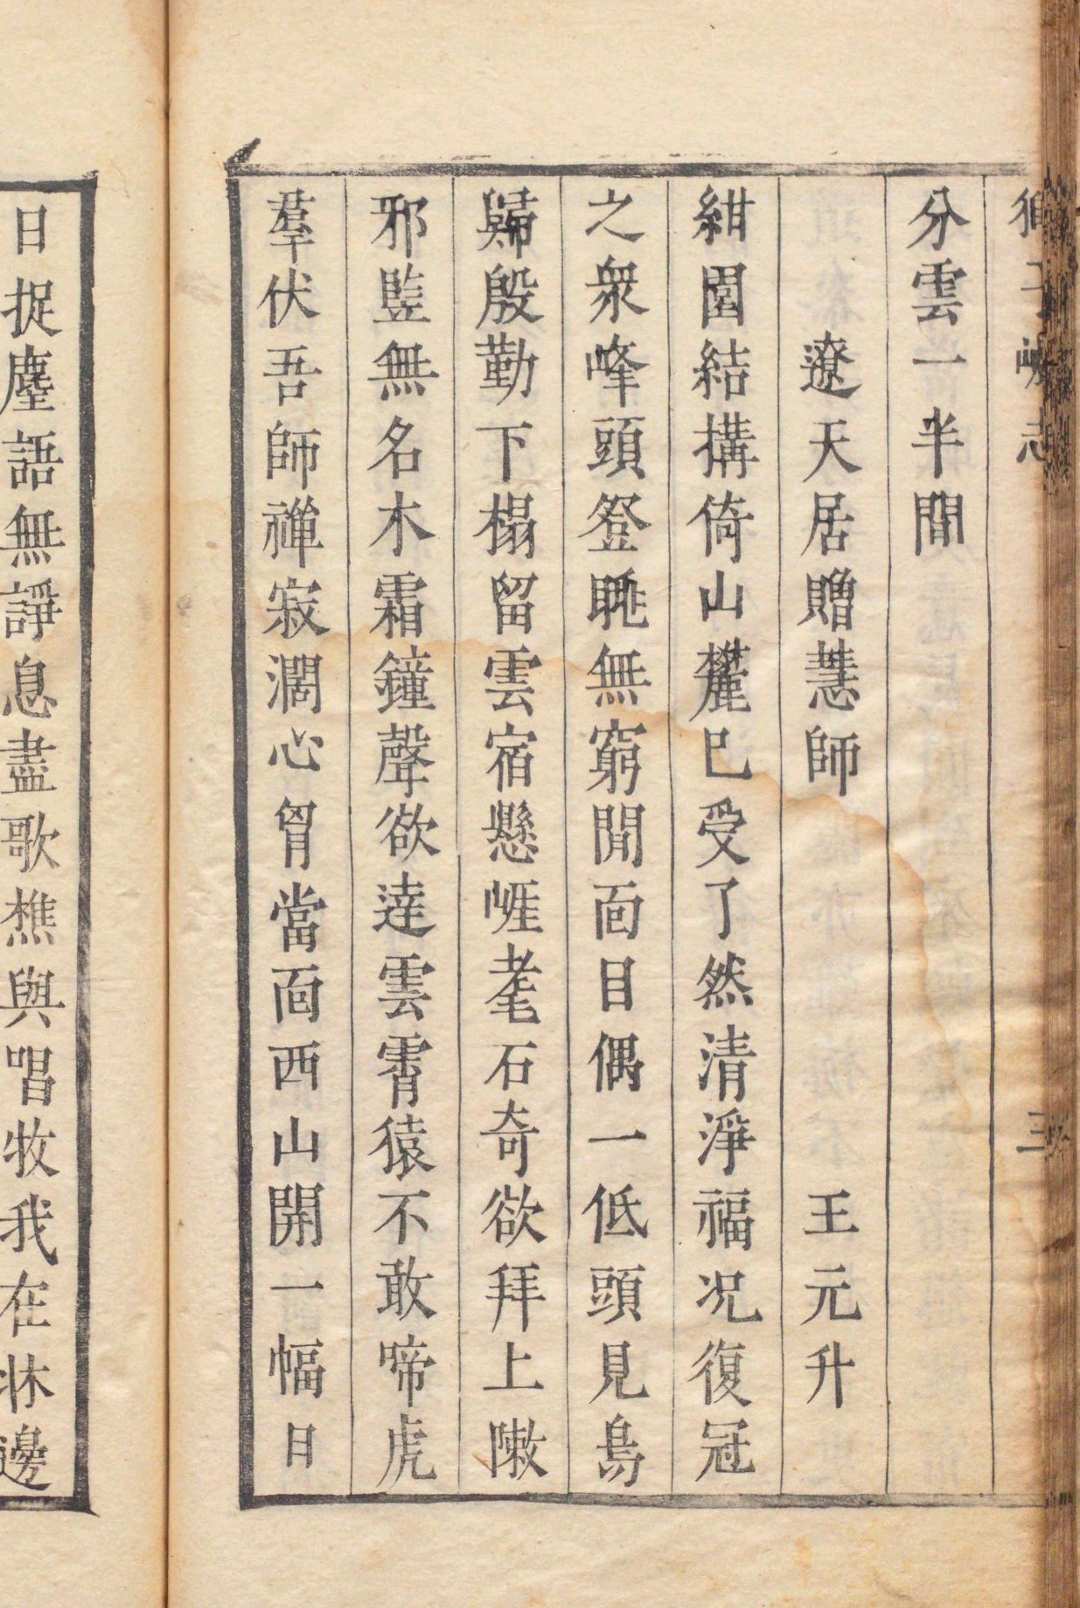 分雲一半間
遼天居贈慧師　王元升
紺園結搆倚山麓已受了然清淨福况復冠
之衆峰頭登眺無窮閒面目偶一低頭見鳥
歸殷勤下榻留雲宿懸崖老石奇欲拜上
邪監無名木霜鐘聲欲達雲霄猿不敢啼虎
羣伏吾師禪寂濶心胷當面西山開一幅日
日捉麈語無諍息盡歌樵與唱牧我在牀邊